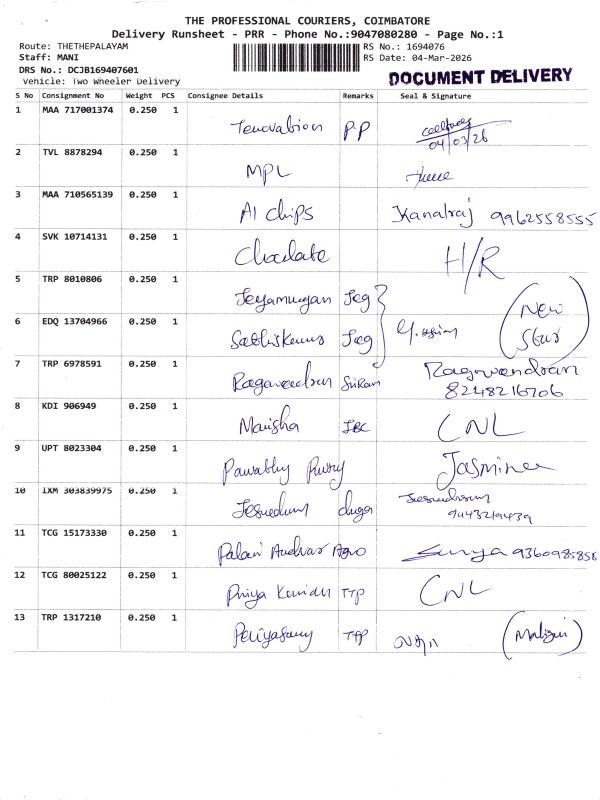 THE PROFESSIONAL COURIERS, COIMBATORE
Delivery Runsheet - PRR - Phone No.:9047080280 - Page No.:1
Route: THETHEPALAYAM
RS No.: 1694076
Staff: MANI
RS Date: 04-Mar-2026
DRS No.: DCJB169407601
Vehicle: Two Wheeler Delivery
DOCUMENT DELIVERY
S No Consignment No Weight PCS Consignee Details Remarks Seal & Signature
1 MAA 717001374 0.250 1 PP
04/03/26
2 TVL 8878294 0.250 1 MPL
3 MAA 710565139 0.250 1 AI chips Kanalraj 9962558555
4 SVK 10714131 0.250 1 H/R
5 TRP 8010806 0.250 1 Jeyamurugan Jeg (New
6 EDQ 13704966 0.250 1 Jeg Star)
7 TRP 6978591 0.250 1 Sriram Ragavendran
8248216706
8 KDI 906949 0.250 1 Manisha CNL
9 UPT 8023304 0.250 1 Jasmine
10 IXM 303839975 0.250 1
9443219439
11 TCG 15173330 0.250 1 Palani Andavar Agro Surya 9360985858
12 TCG 80025122 0.250 1 Priya CNL
13 TRP 1317210 0.250 1 Periyasamy